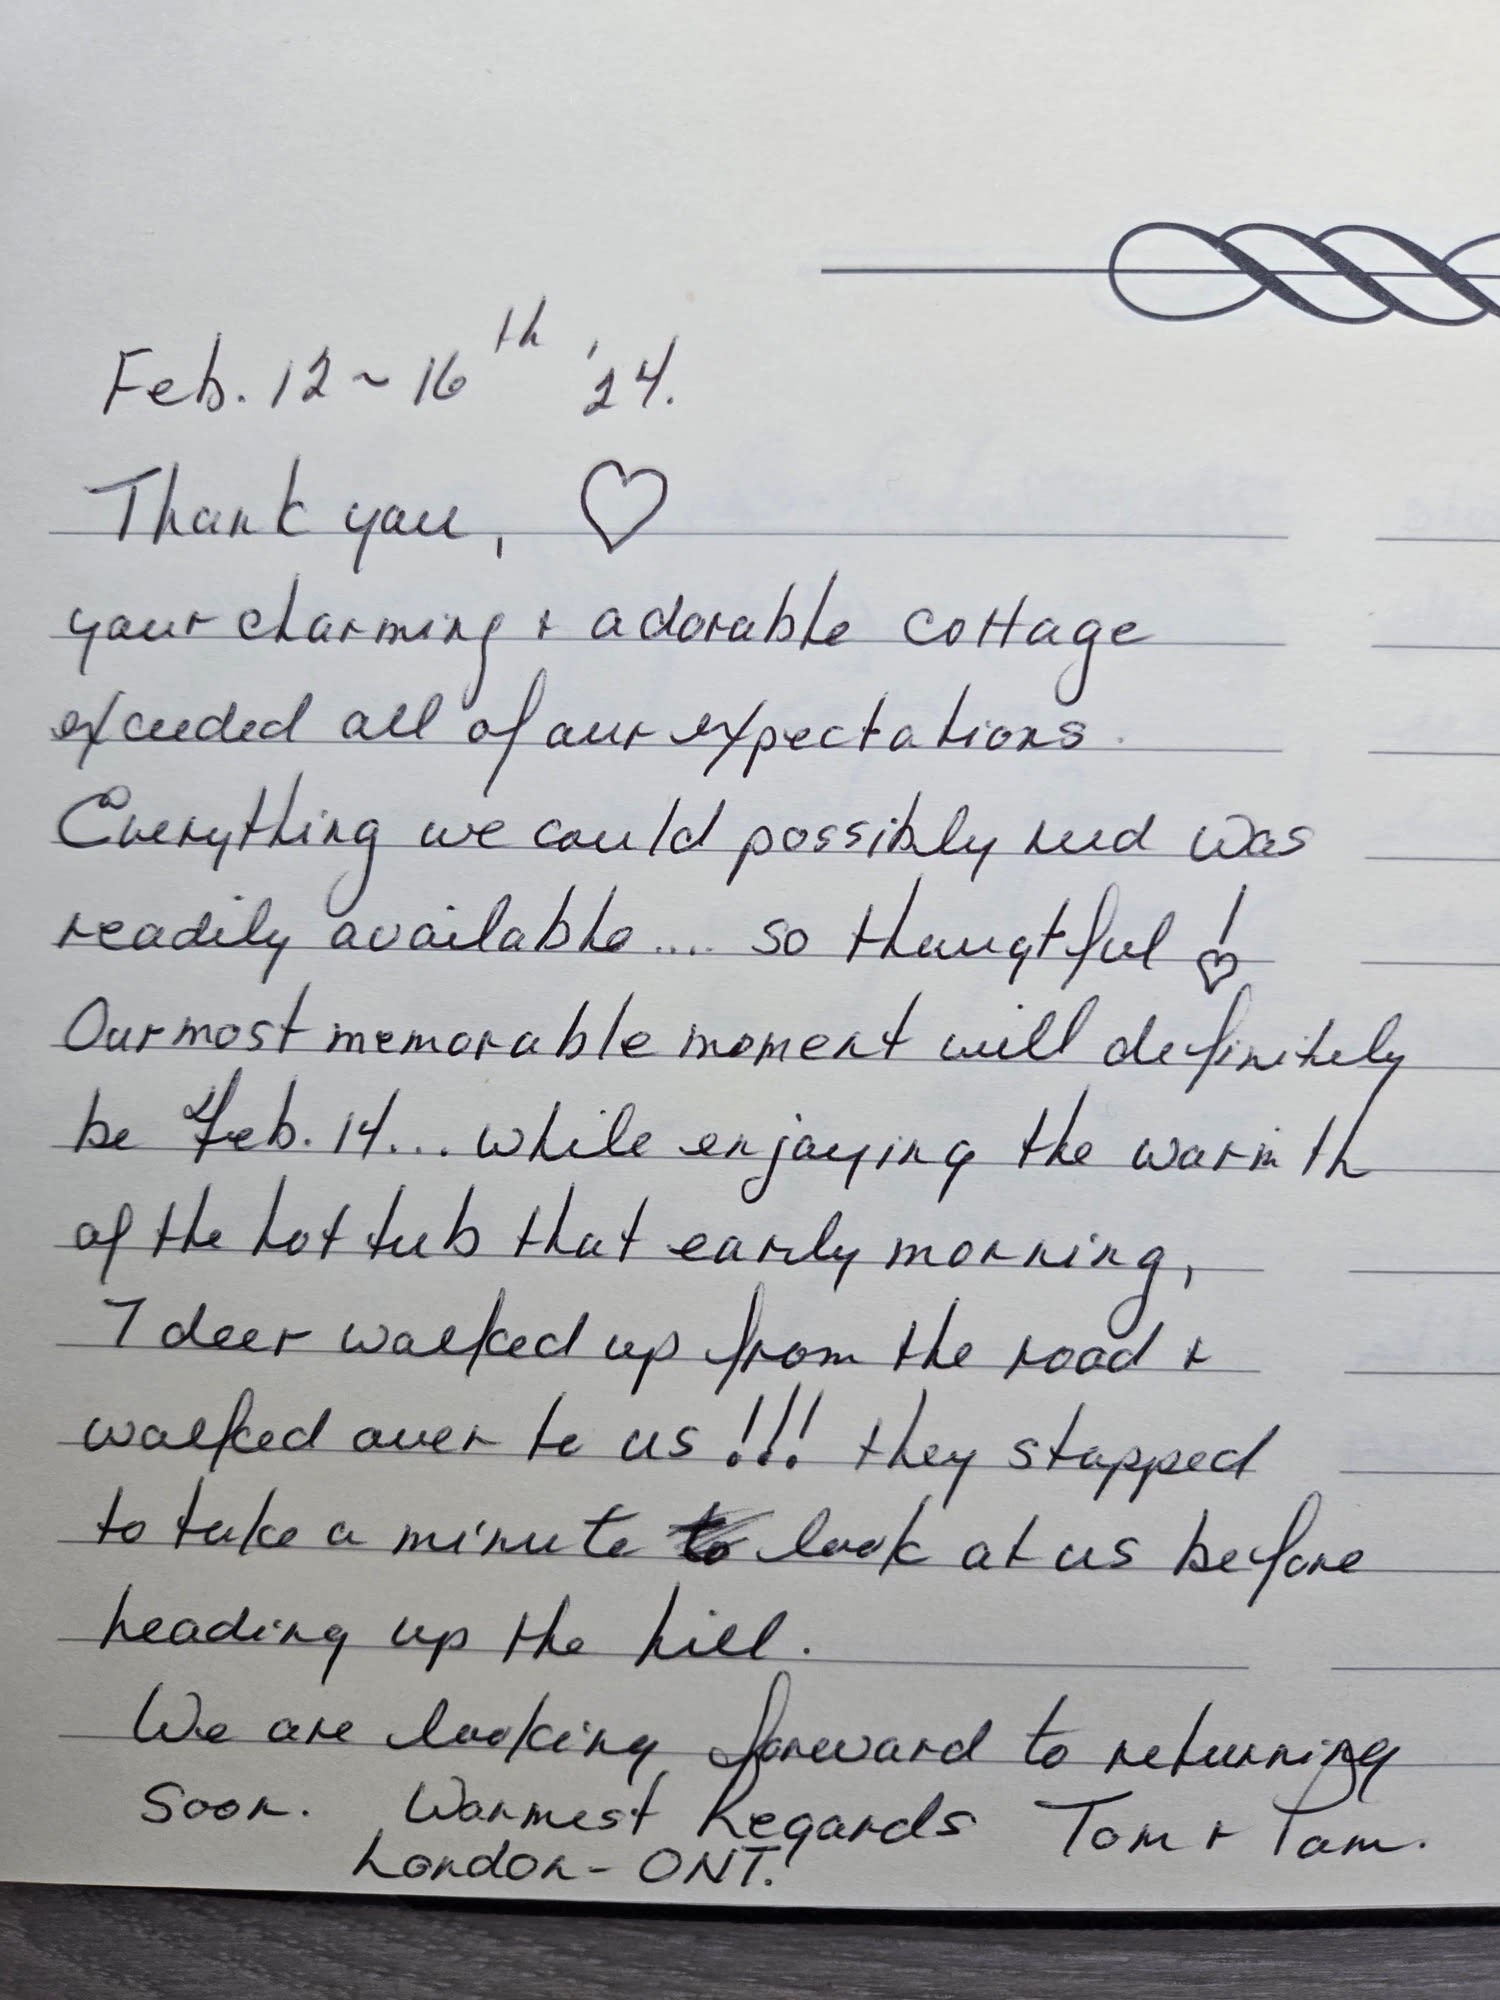 Feb. 12 ~ 16th '24.
Thank you, ♡
your charming + adorable cottage
exceeded all of our expectations.
Everything we could possibly need was
readily available.... so thougtful !
Our most memorable moment will definitely
be Feb. 14... while enjoying the warmth
of the hot tub that early morning,
7 deer walked up from the road +
walked over to us !!! they stopped
to take a minute to look at us before
heading up the hill.
We are looking forward to returning
soon. Warmest Regards Tom + Pam.
London - ONT.